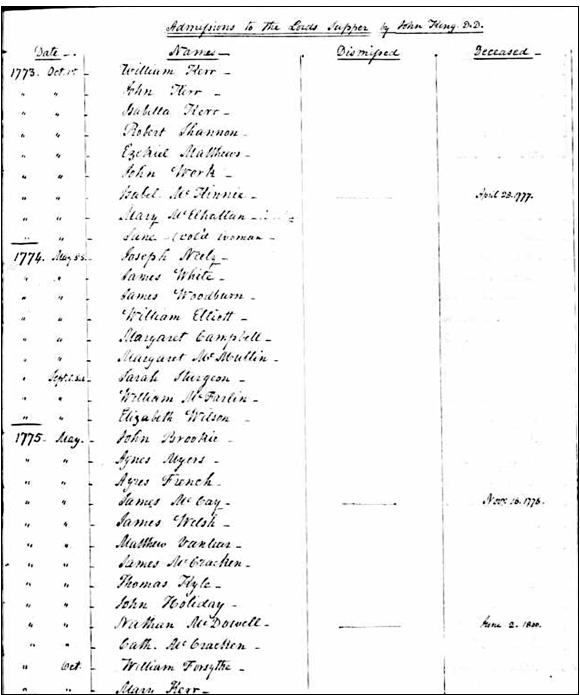 Admissions to the Lords Supper by John King D.D.
Date Names Dismissed Deceased
1773. Oct. William Kerr
" " John Kerr
" " Isabella Kerr
" " Robert Shannon
" " Ezekiel Matthews
" " John Work
" " Isabel McKinnie April 23. 1777.
" " Mary McElhallan
" " June (col'd woman
1774. May Joseph Neely
" " James White
" " James Woodburn
" " William Elliott
" " Margaret Campbell
" " Margaret McMullin
" Sept. Sarah Sturgeon
" " William McFarlin
" " Elizabeth Wilson
1775. May. John Brookie
" " Agnes Myers
" " Agnes French
" " James McCay Nov. 16. 1776.
" " James Welsh
" " Matthew Vanlear
" " James McCracken
" " Thomas Kyle
" " John Holiday
" " Nathan McDowell June 2. 1800.
" " Cath. McCracken
" Oct. William Forsythe
" " Mary Kerr